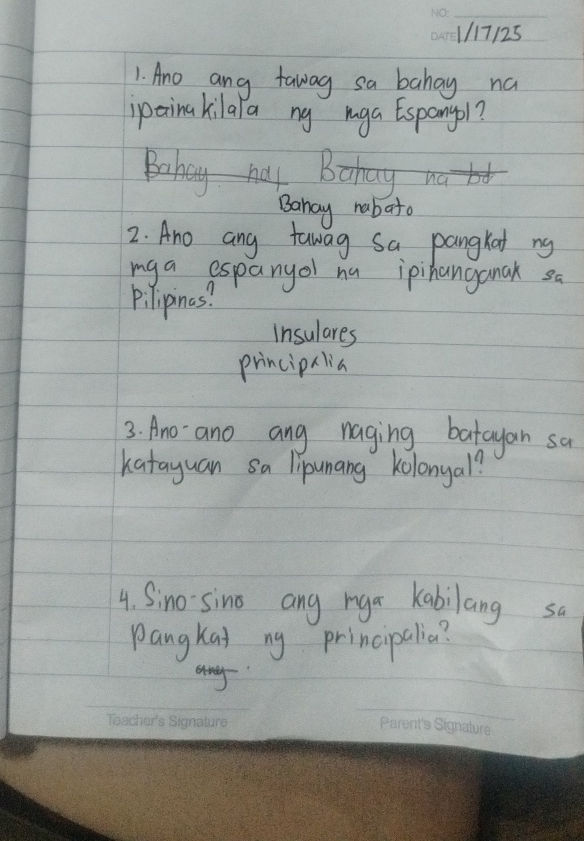 NO:
DATE 1/17/25
1. Ano ang tawag sa bahay na
ipainakilala ng mga Espanyol?
Bahay na
Bahay nabato
2. Ano ang tawag sa pangkat ng
mga espanyol na ipihanganak sa
Pilipinas?
Insulares
principalia
3. Ano-ano ang naging batayan sa
katayuan sa lipunang kolonyal?
4. Sino-sino ang mga kabilang sa
pangkat ng principalia?
ang
Teacher's Signature
Parent's Signature